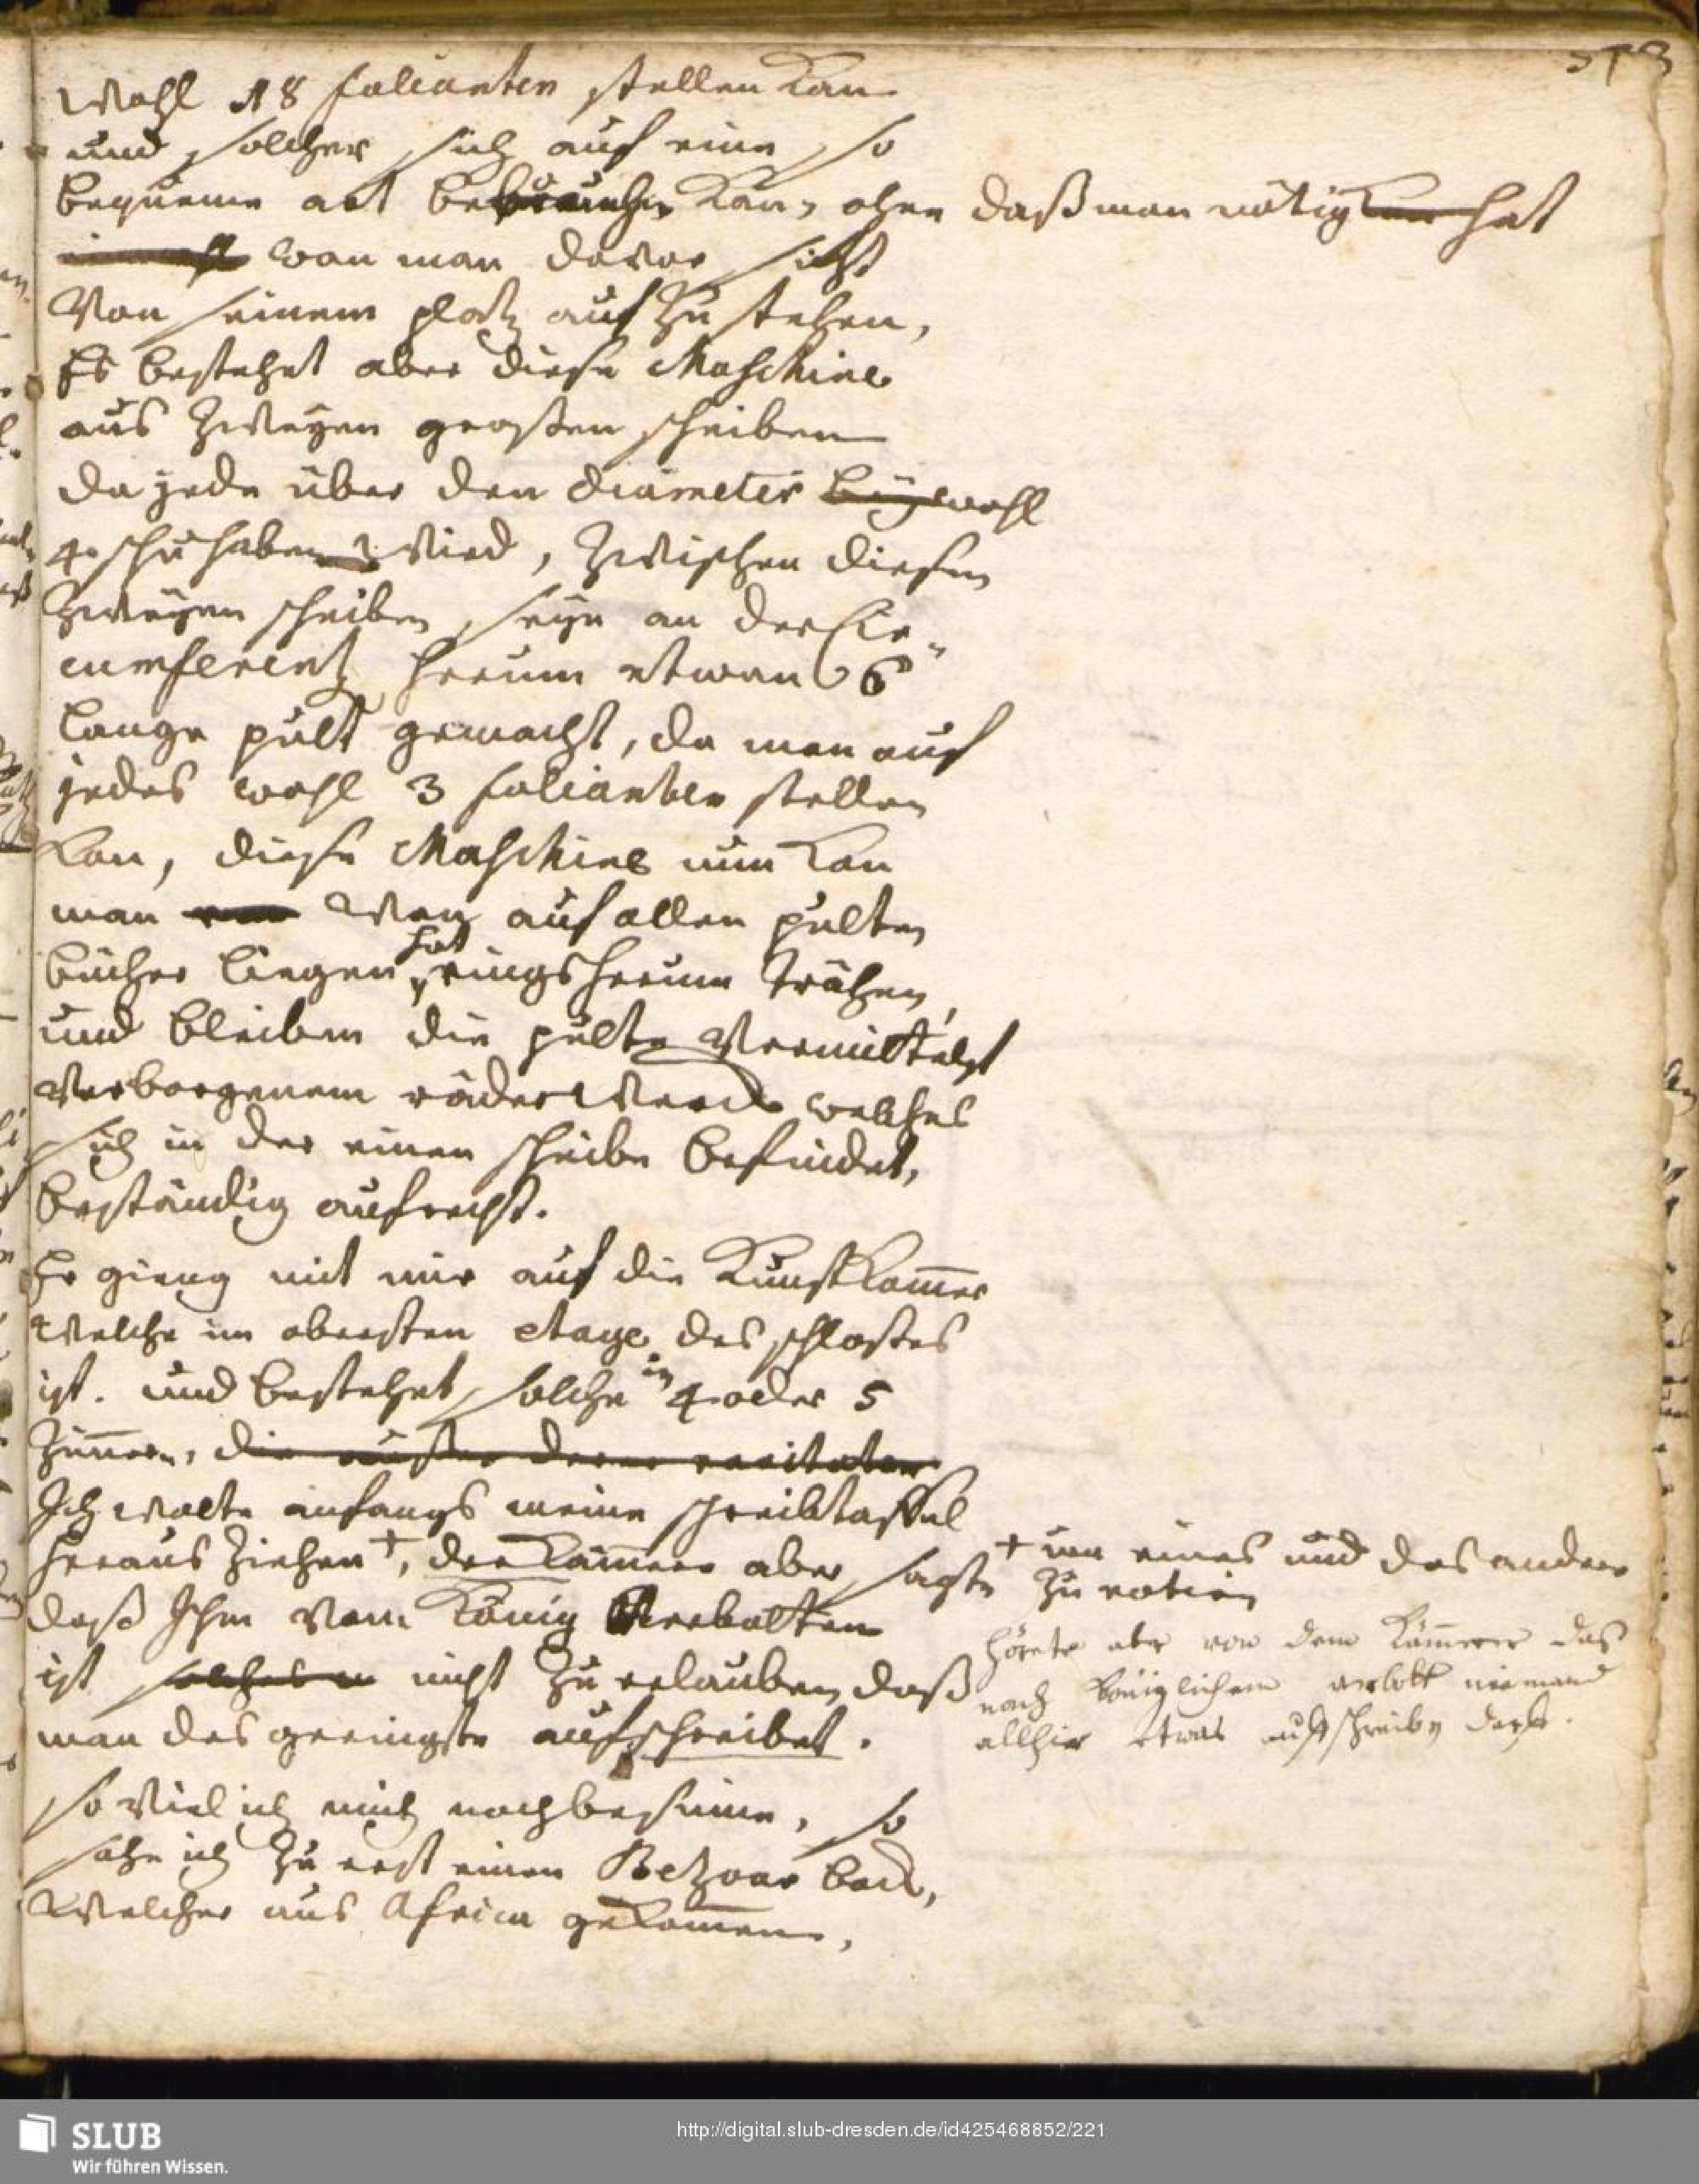 Wohl 18 folianten stellen kan
und solcher sich auf eine so
bequeme art kan, ohne daß man nötig hat
wan man davor sitzt
Von seinem platz auf zu stehen,
Es bestehet aber diese Maschine
aus Zweyen großen scheiben
da jede über den diameter wohl
4 schu haben wird, Zwischen diesen
Zweyen scheiben seyn an der Cir-
cumferentz herum etwan 6
lange pult gemacht, da man auf
jedes wohl 3 folianten stellen
kan, diese Maschine nun kan
man Wan auf allen pulten
bücher liegen hat, ringsherum trähen,
und bleiben die pulte Vermittelst
Verborgenem räderwerck welches
sich in der einen scheibe befindet,
beständig aufrecht.
Er gieng mit mir auf die Kunstkam̄er
Welche im obersten etage des schloßes
ist. und bestehet solche in 4 oder 5
Zim̄ern, die außer denen raritaten
Ich wolte anfangs meine schreibtaffel
heraus Ziehen +, der Käm̄erer aber sagte
+ um eines und das andere
zu notirn
daß Ihm vom König Verbotten
ist solches nicht zu erlauben daß
man das geringste aufschreibet.
hörete aber von dem Käm̄erer das
nach königlichem verbott niemand
allhier etwas aufschreiben derfe.
so Viel ich mich nach besinne, so
sahe ich zu erst einen Bezoar bock,
Welcher aus Africa gekom̄en,
SLUB
Wir führen Wissen.
http://digital.slub-dresden.de/id425468852/221